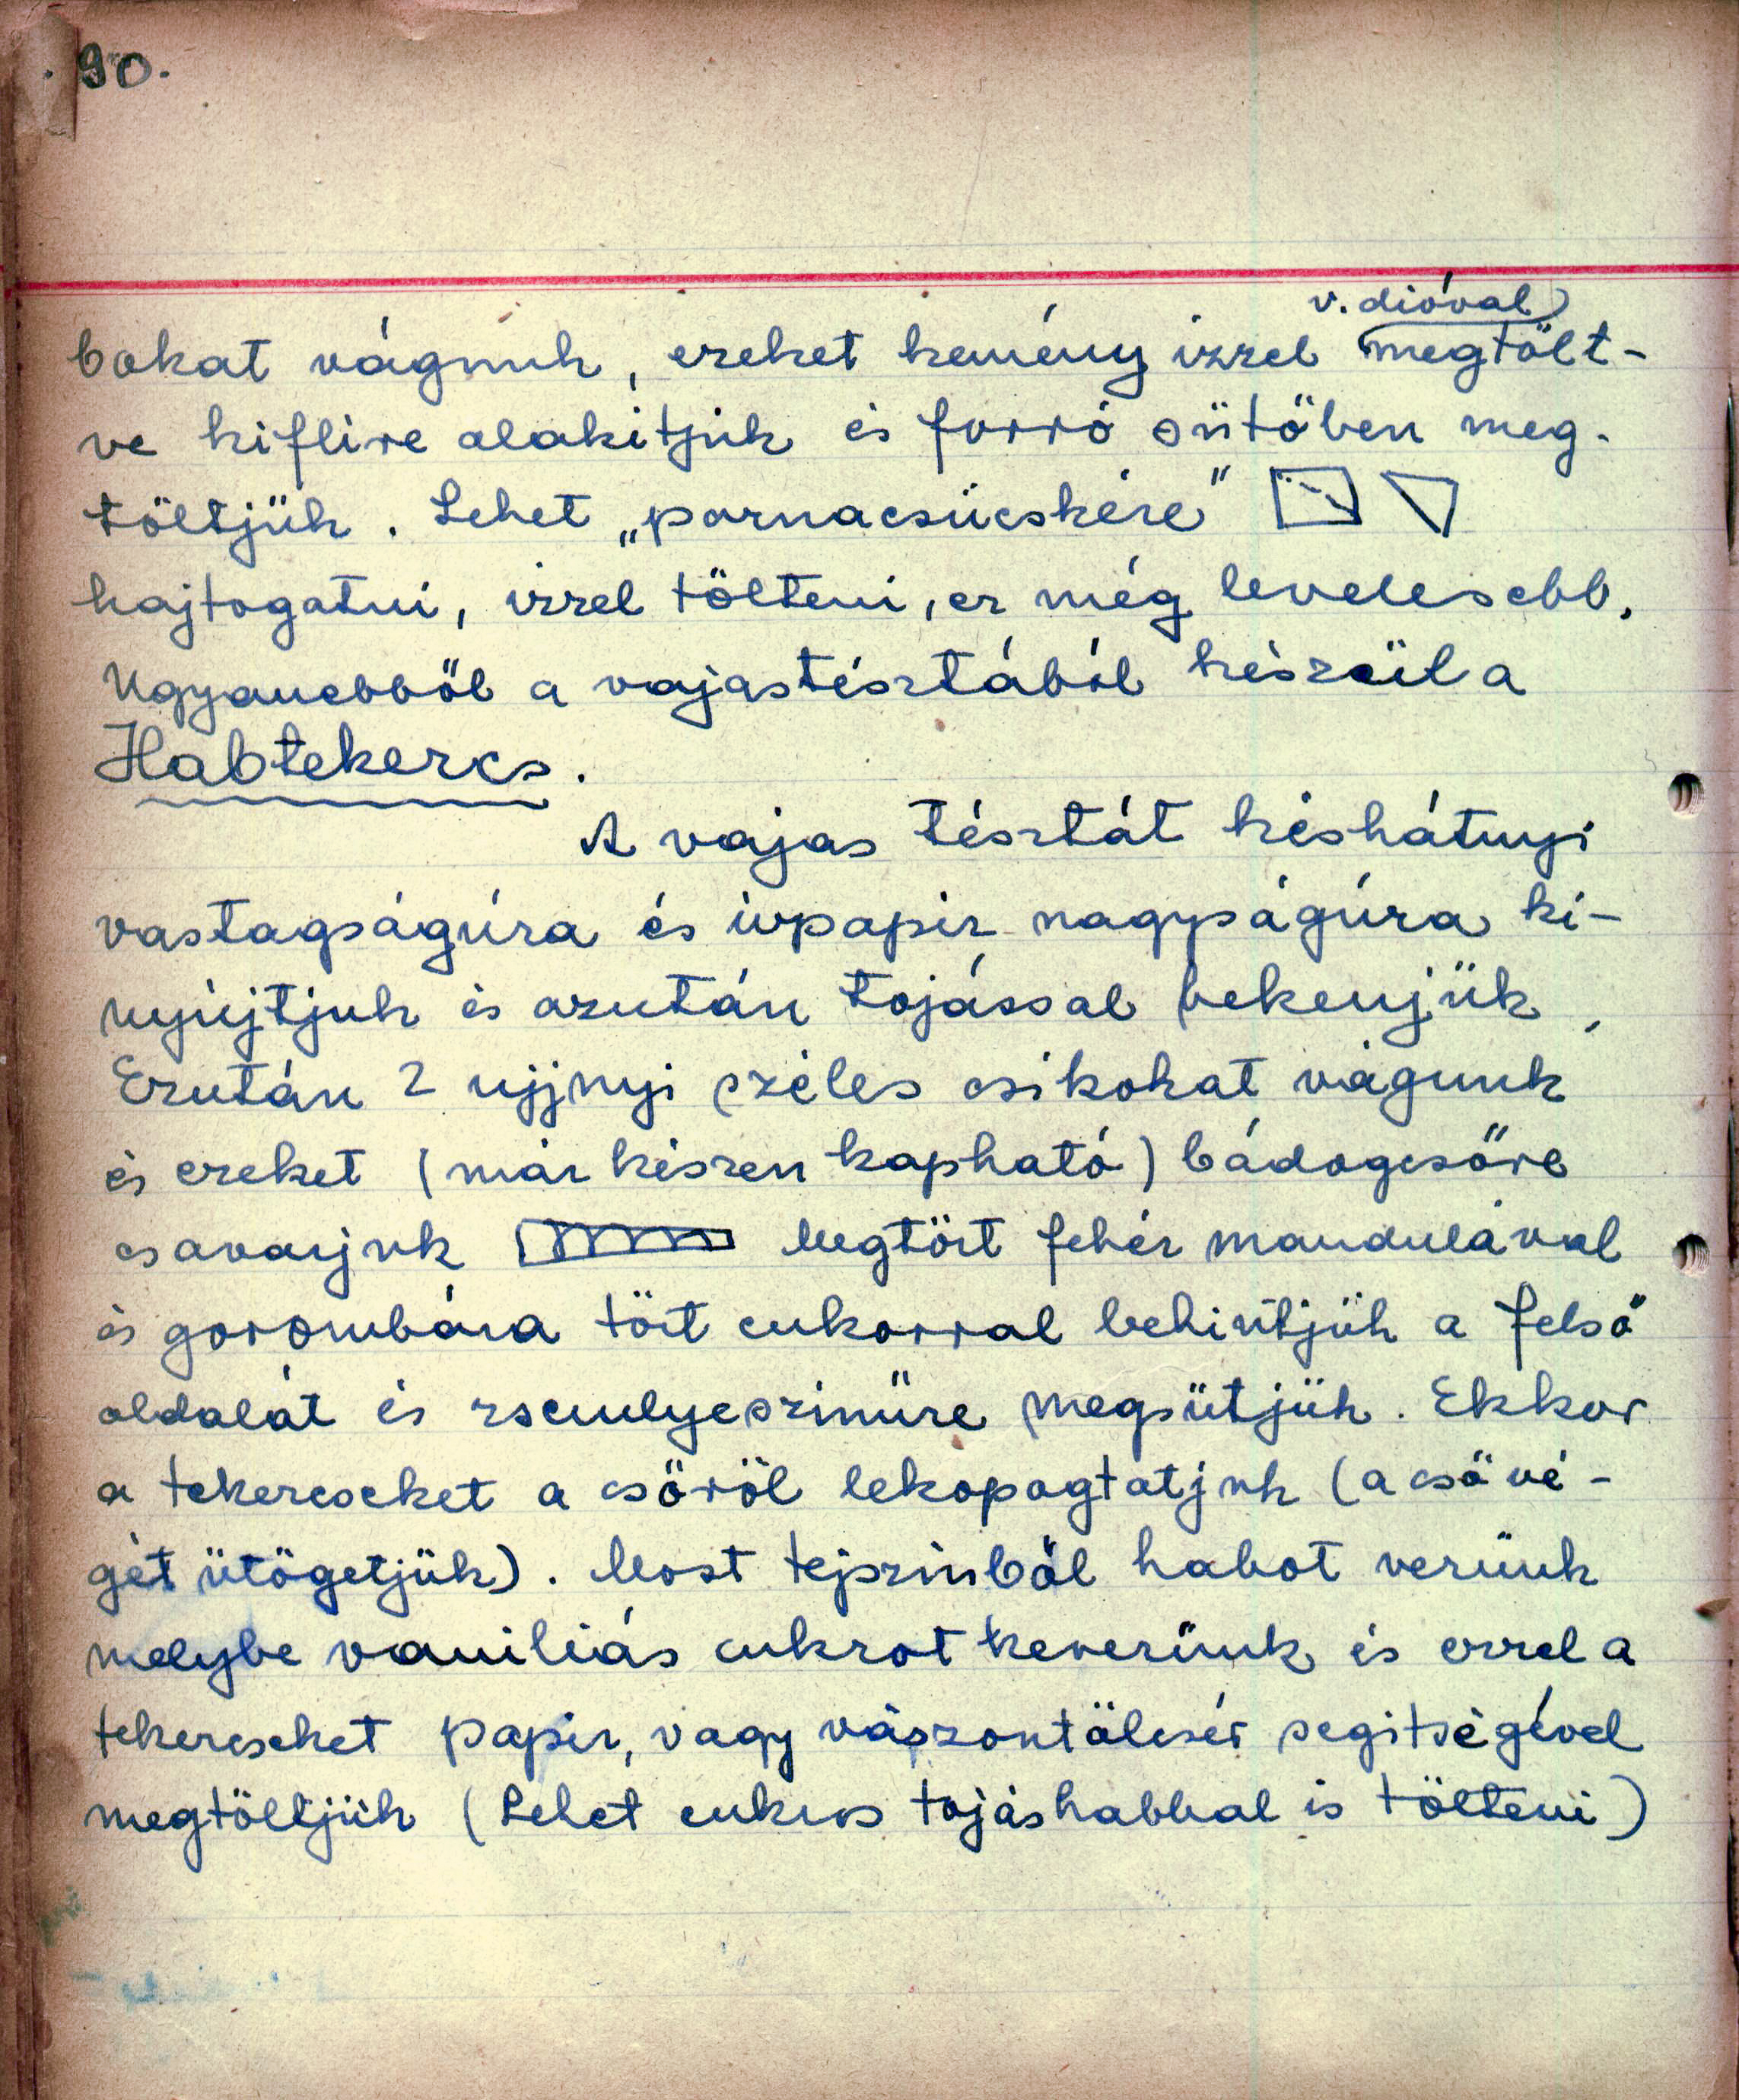 90.
v. dióval
bokat vágunk, ezeket kemény izzel megtölt-
ve kiflire alakitjuk és forró sütőben meg-
töltjük. Lehet „párnacsücskére”
hajtogatni, izzel tölteni, ez még levelesebb.
Ugyanebből a vajastésztából készül a
Habtekercs.
A vajas tésztát késhátnyi
vastagságúra és ivpapir nagyságúra ki-
nyújtjuk és azután tojással bekenjük,
Ezután 2 ujjnyi széles csikokat vágunk
és ezeket (már készen kapható) bádogcsőre
csavarjuk Megtört fehér mandulával
és gorombára tört cukorral behintjük a felső
oldalát és zsemlyeszinűre megsütjük. Ekkor
a tekercseket a csőről lekopogtatjuk (a cső vé-
gét ütögetjük). Most tejszinből habot verünk
melybe vaniliás cukrot keverünk és ezzel a
tekercseket papir, vagy vászontölcsér segitségével
megtöltjük (Lehet cukros tojáshabbal is tölteni)